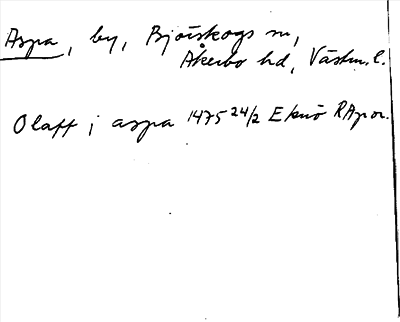 Aspa, by, Björskogs sn,
Åkerbo hd, Västm. l.
Olaff i aspa 1475 24/2 Eknö RApor.